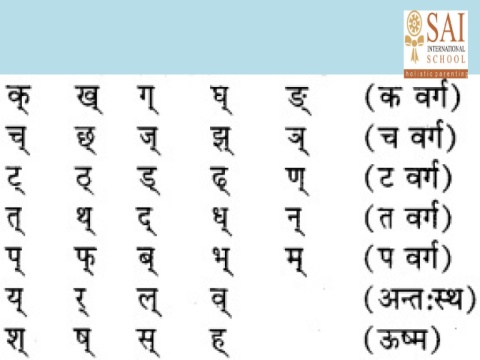 SAI
INTERNATIONAL
SCHOOL
holistic parenting
क् ख् ग् घ् ङ् (क वर्ग)
च् छ् ज् झ् ञ् (च वर्ग)
ट् ठ् ड् ढ् ण् (ट वर्ग)
त् थ् द् ध् न् (त वर्ग)
प् फ् ब् भ् म् (प वर्ग)
य् र् ल् व् (अन्त:स्थ)
श् ष् स् ह् (ऊष्म)